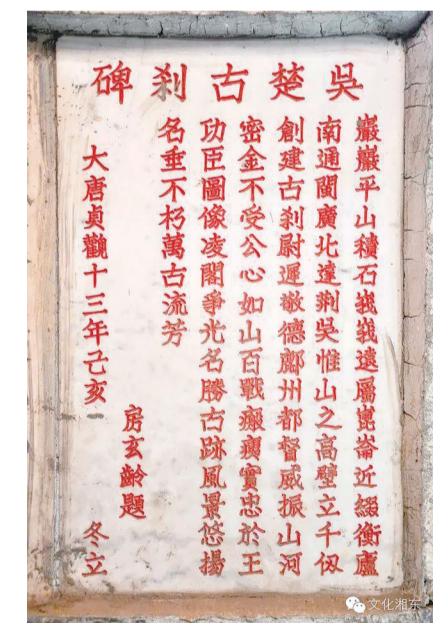 吳楚古刹碑
巖巖平山積石峩峩遠屬崑崙近綴衡廬
南通閩廣北達荆吳惟山之高壁立千仞
創建古刹尉遲敬德鄜州都督威振山河
密金不受公心如山百戰瘢痍實忠於王
功臣圖像凌閣爭光名勝古跡風景悠揚
名垂不朽萬古流芳
房玄齡題
大唐貞觀十三年己亥一冬立
文化湘东